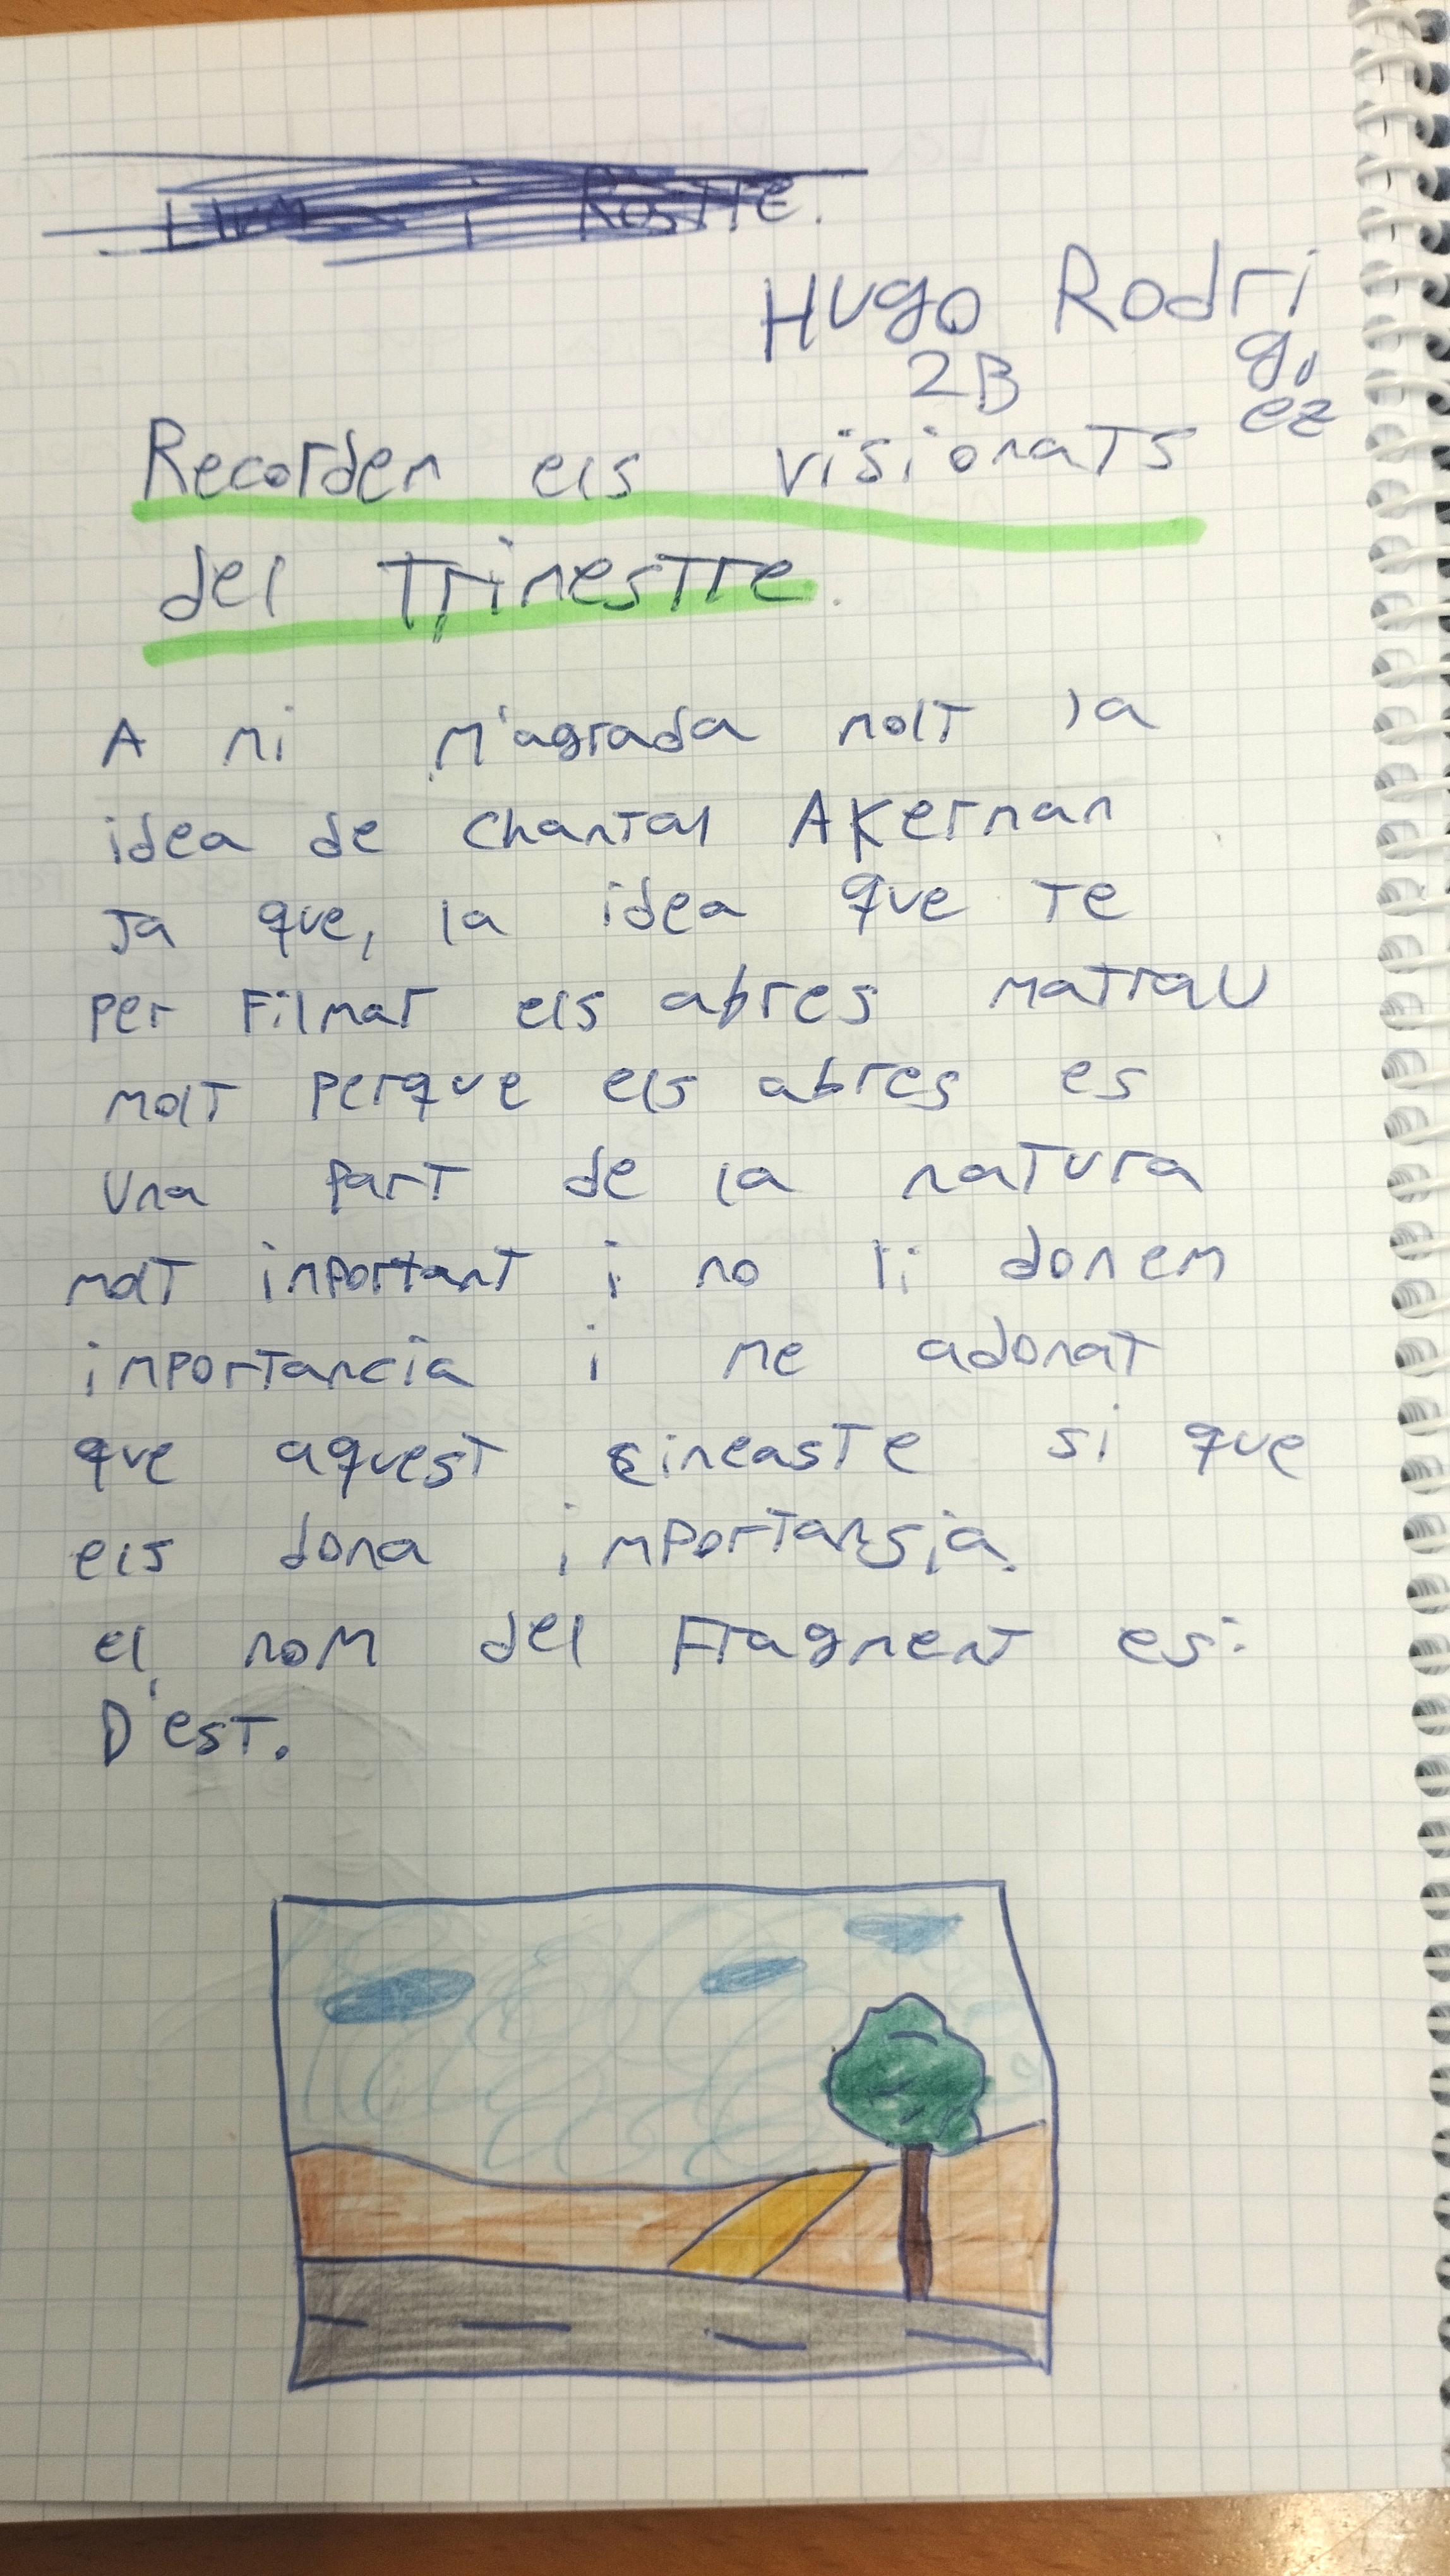 Hugo Rodri
g,
ez
2B
Recorden els visionats
del Trimestre.
A mi m'agrada molt la
idea de Chantal Akerman
Ja que, la idea que te
per Filmar els abres m'atrau
molt perque els abres es
una part de la natura
molt important i no li donem
importancia i me adonat
que aquest cineaste si que
els dona importansia.
el nom del Fragment es:
D'est.